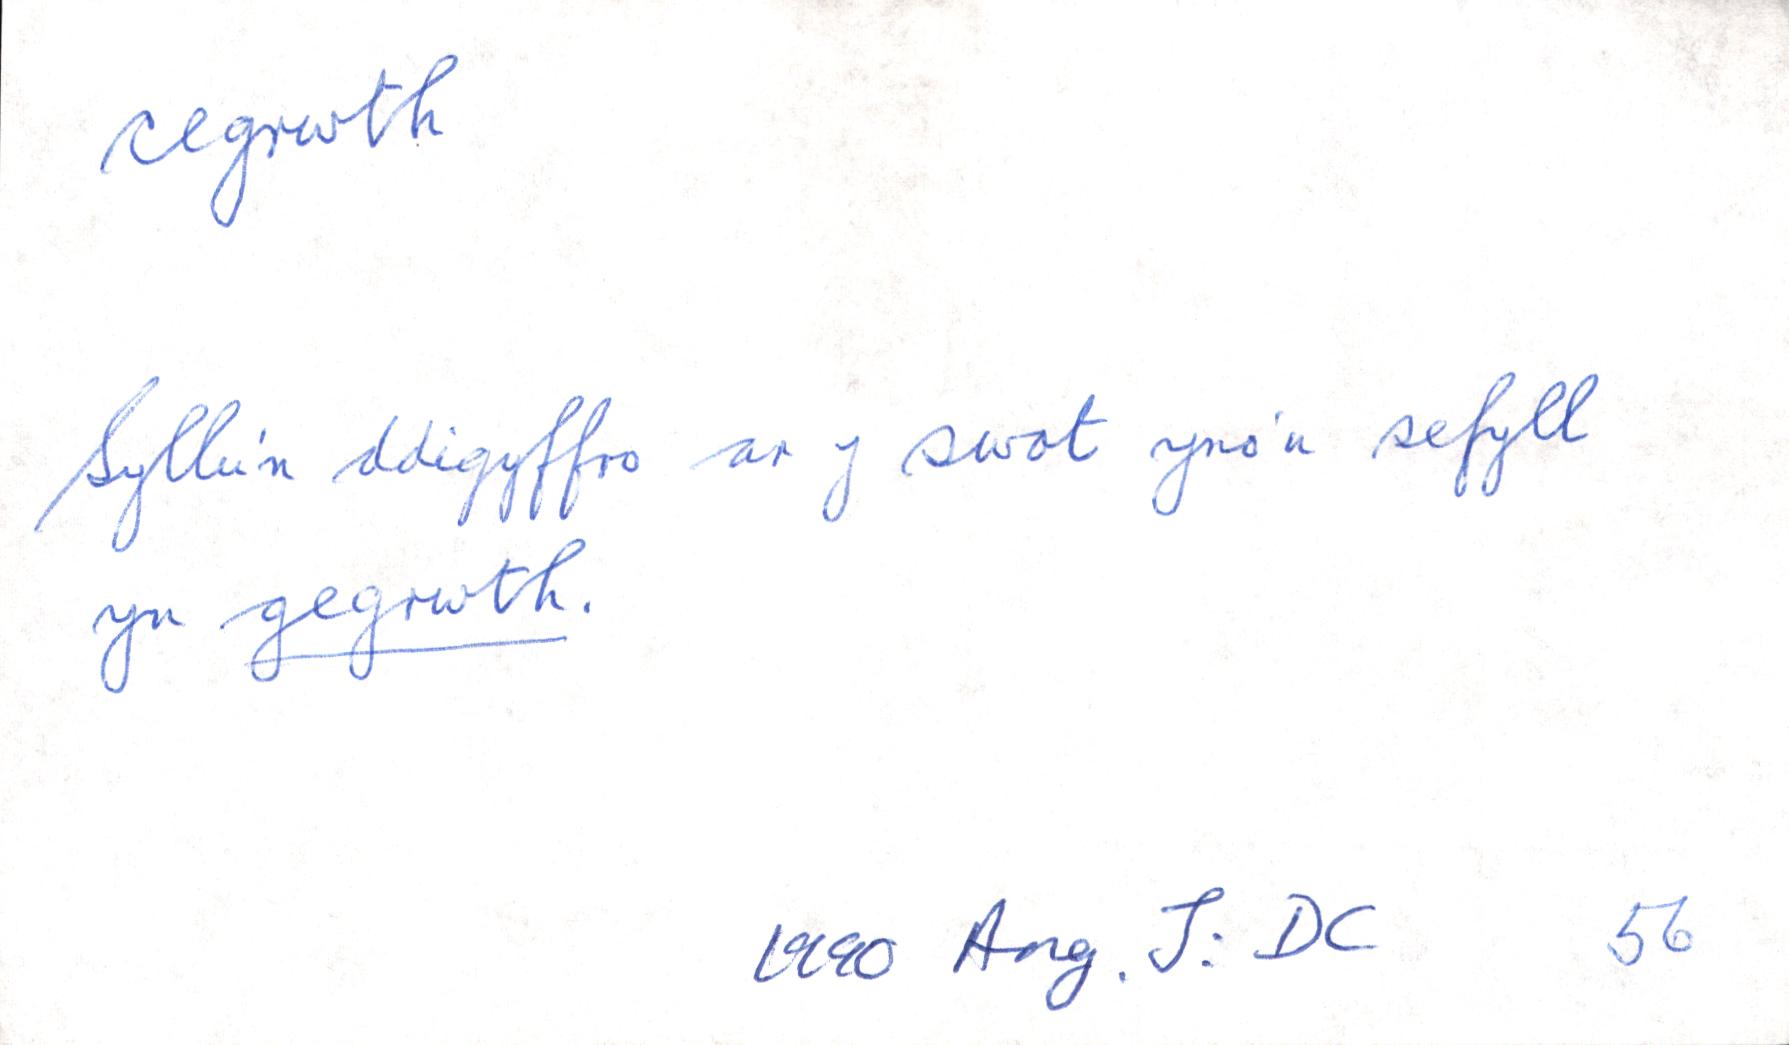 cegrwth
Syllu'n ddigyffro ar y swot yno'n sefyll
yn gegrwth.
1990 Ang. T: DC 56